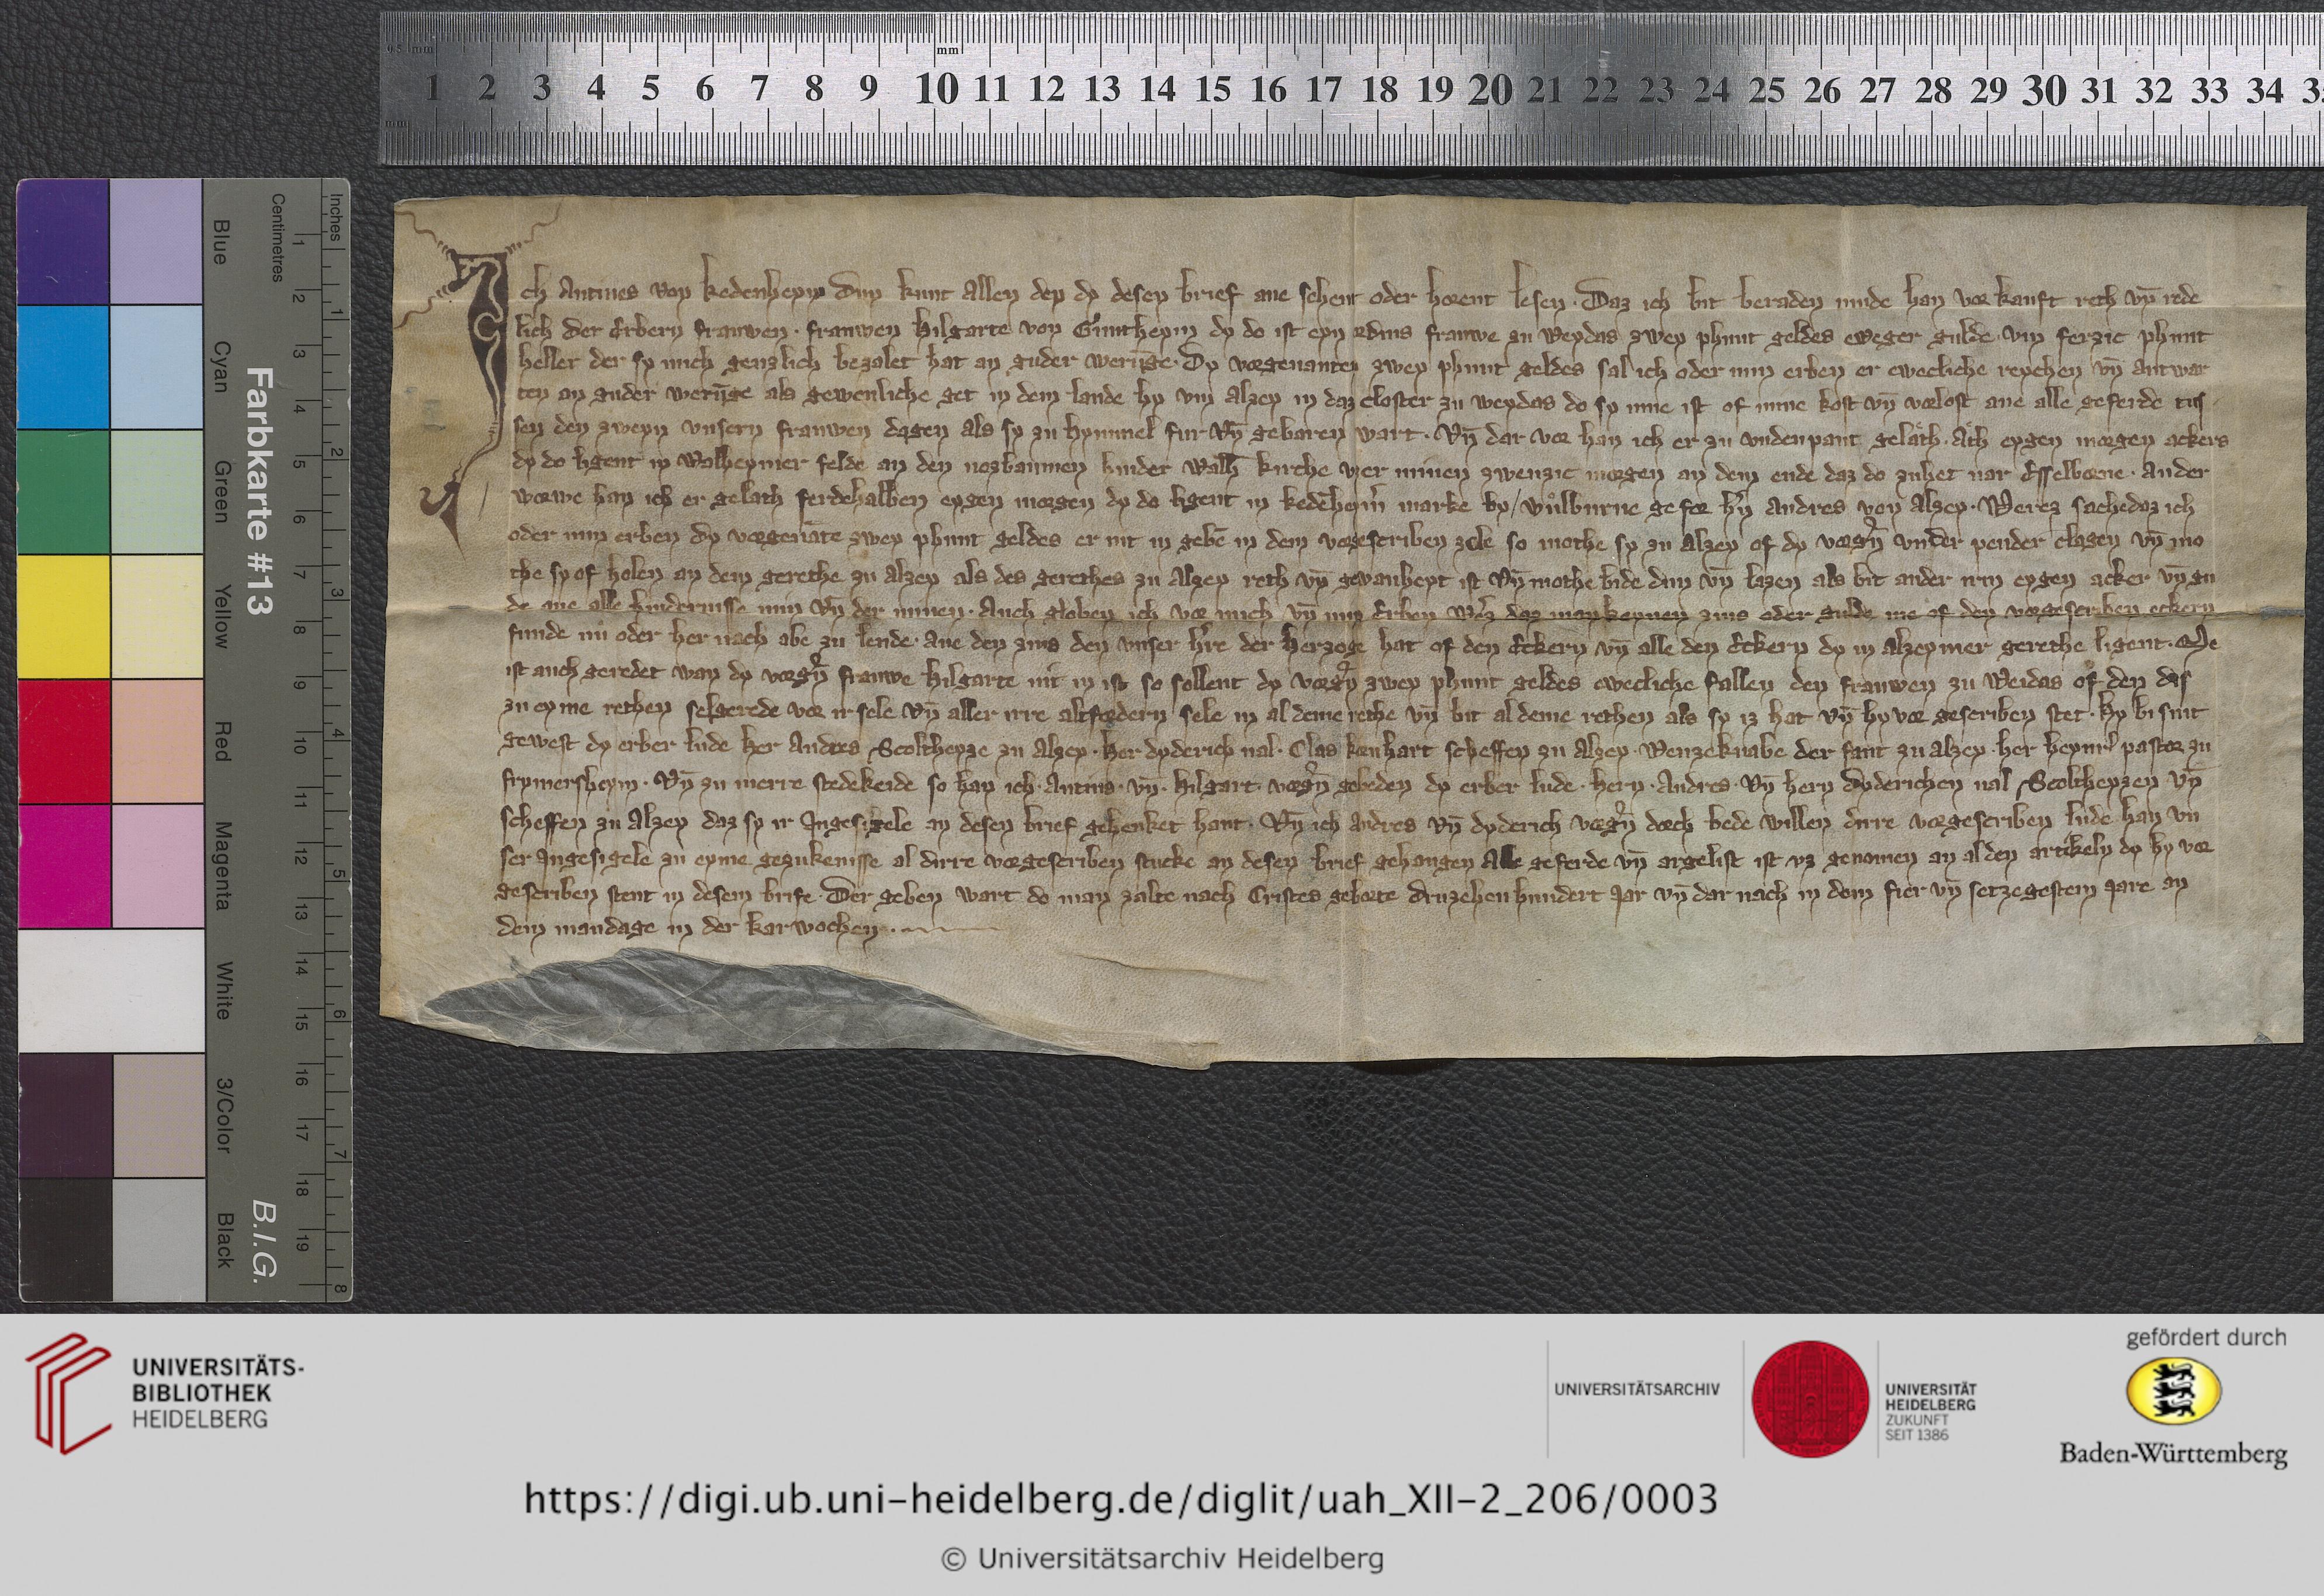 1 2 3 4 5 6 7 8 9 10 11 12 13 14 15 16 17 18 19 20 21 22 23 24 25 26 27 28 29 30 31 32 33 34
mm
Inches
Centimetres
Farbkarte #13
B.I.G.
Blue Cyan Green Yellow Red Magenta White 3/Color Black
Ich Antmes von kedenheym Dun kunt Allen den dy desen brief ane sehent oder horent lesen · Daz ich bit beraden mude han vor kauft reth vn̄ rede
lich der Erbern frauwen · frauwen hilgarte von Gūntheym dy do ist eyn ordins frauwe zu Weydas zwey phunt geldes eweger gulde vm ferzic phunt
heller der sy mich genzlich bezalet hat an guder werūge · Dy vorgenanten zwey phunt geldes sal ich oder min erben er ewecliche reychen vn̄ Antwar
ten an guder werūge als gewenliche get in dem lande hy vm Alzey in daz closter zu weydas do sy inne ist of mine kost vn̄ vorlost ane alle geferde tus
sen den zweyn vnsern frauwen dagen als sy zu hymmel fur vn̄ geboren wart · Vn̄ dar vor han ich er zu vndenpant gelath · Ath eygen morgen ackers
dy do ligent in Walheymer felde an den nozbaumen hinder Walh̄ kirche vier minen zwenzic morgen an dem ende daz do zuhet nar Esselborne · Ander
worwe han ich er gelath ferdehalben eygen morgen dy do ligent in kedēheym̄ marke by / wulburne gefor hn̄ Andres von Alzey · Werez sache daz ich
oder min erben dy vorgenāte zwey phunt geldes er nit in gebē in dem vorgescriben zcile so mothe sy zu Alzey of dy vorgn̄ vnder pender clagen vn̄ mo
the sy of holen an dem gerethe zu Alzey als des gerethes zu Alzey reth vn̄ gewanheyt ist Vn̄ mothe bide dun vn̄ lazen als bit ander irm eygen acker vn̄ gu
de ane alle hindernisse min vn̄ der minen · Auch globen ich vor mich vn̄ min Erben wez daz man keynen zins oder gulde me of den vorgescriben eckern
funde nu oder her nach abe zu lende · ane den zins den vnser h're der herzoge hat of den Eckern vn̄ alle den Eckern dy in Alzeymer gerethe ligent · Me
ist auch geredet wan dy vorgn̄ frauwe hilgarte nit in ist so sollent dy vorgn̄ zwey phunt geldes ewecliche fallen den frauwen zu Weidas of den dis
zu eyme rethen selgerede vor ir sele Vn̄ aller irre altfordern sele in al deme rethe vn̄ bit al deme rethen als sy iz hat vn̄ hy vor gescriben stet · hy bi sint
gewest dy erber lude her Andres Scoltheyze zu Alzey · her dyderich nal · Clas kenhart scheffen zu Alzey · Wenzeknabe der faut zu Alzey · her heynr' pastor zu
frymersheym · Vn̄ zu merre stedekeide so han ich · Antms · vn̄ · hilgart · vorgn̄ gebeden dy erber lude · hern · Andres · Vn̄ hern dyderichen nal Scoltheyzen Vn̄
scheffen zu Alzey daz sy ir Ingesigele an desen brief gehenket hant · Vn̄ ich Andres vn̄ dyderich vorgn̄ dorch bede willen dirre vorgescriben lude han vn
ser Ingesigele zu eyme gezukenisse al dirre vorgescriben stucke an desen brief gehangen Alle geferde vn̄ argelist ist vz genomen an al den artikeln dy hy vor
gescriben stent in desem brife · Der geben wart do man zalte nach Cristes geborte druzehen hundert Jar vn̄ dar nach in dem fier vn̄ setzegestem Jare an
dem mandage in der karwochen ·
UNIVERSITÄTS-
BIBLIOTHEK
HEIDELBERG
UNIVERSITÄTSARCHIV
UNIVERSITÄT
HEIDELBERG
ZUKUNFT
SEIT 1386
gefördert durch
Baden-Württemberg
https://digi.ub.uni-heidelberg.de/diglit/uah_XII-2_206/0003
© Universitätsarchiv Heidelberg